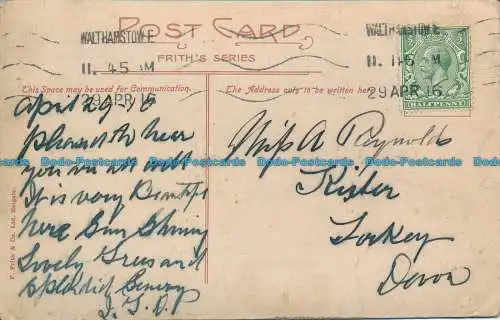 POST CARD
FRITH'S SERIES
WALTHAMSTOW.E.
11.45 AM
29 APR 16
WALTHAMSTOW.E.
11.
29 APR 16
HALFPENNY
This Space may be used for Communication.
The Address only to be written here.
April 29 16
pleased to hear
you are all well
It is very Beautiful
here Sun Shining
Lovely Trees and
Splendid Scenery
Miss A Reynolds
Torkey
Devon
F. Frith & Co. Ltd. Reigate.
Dodo-Postcards Dodo-Postcards Dodo-Postcards Dodo-Postcards Dodo-Postcards